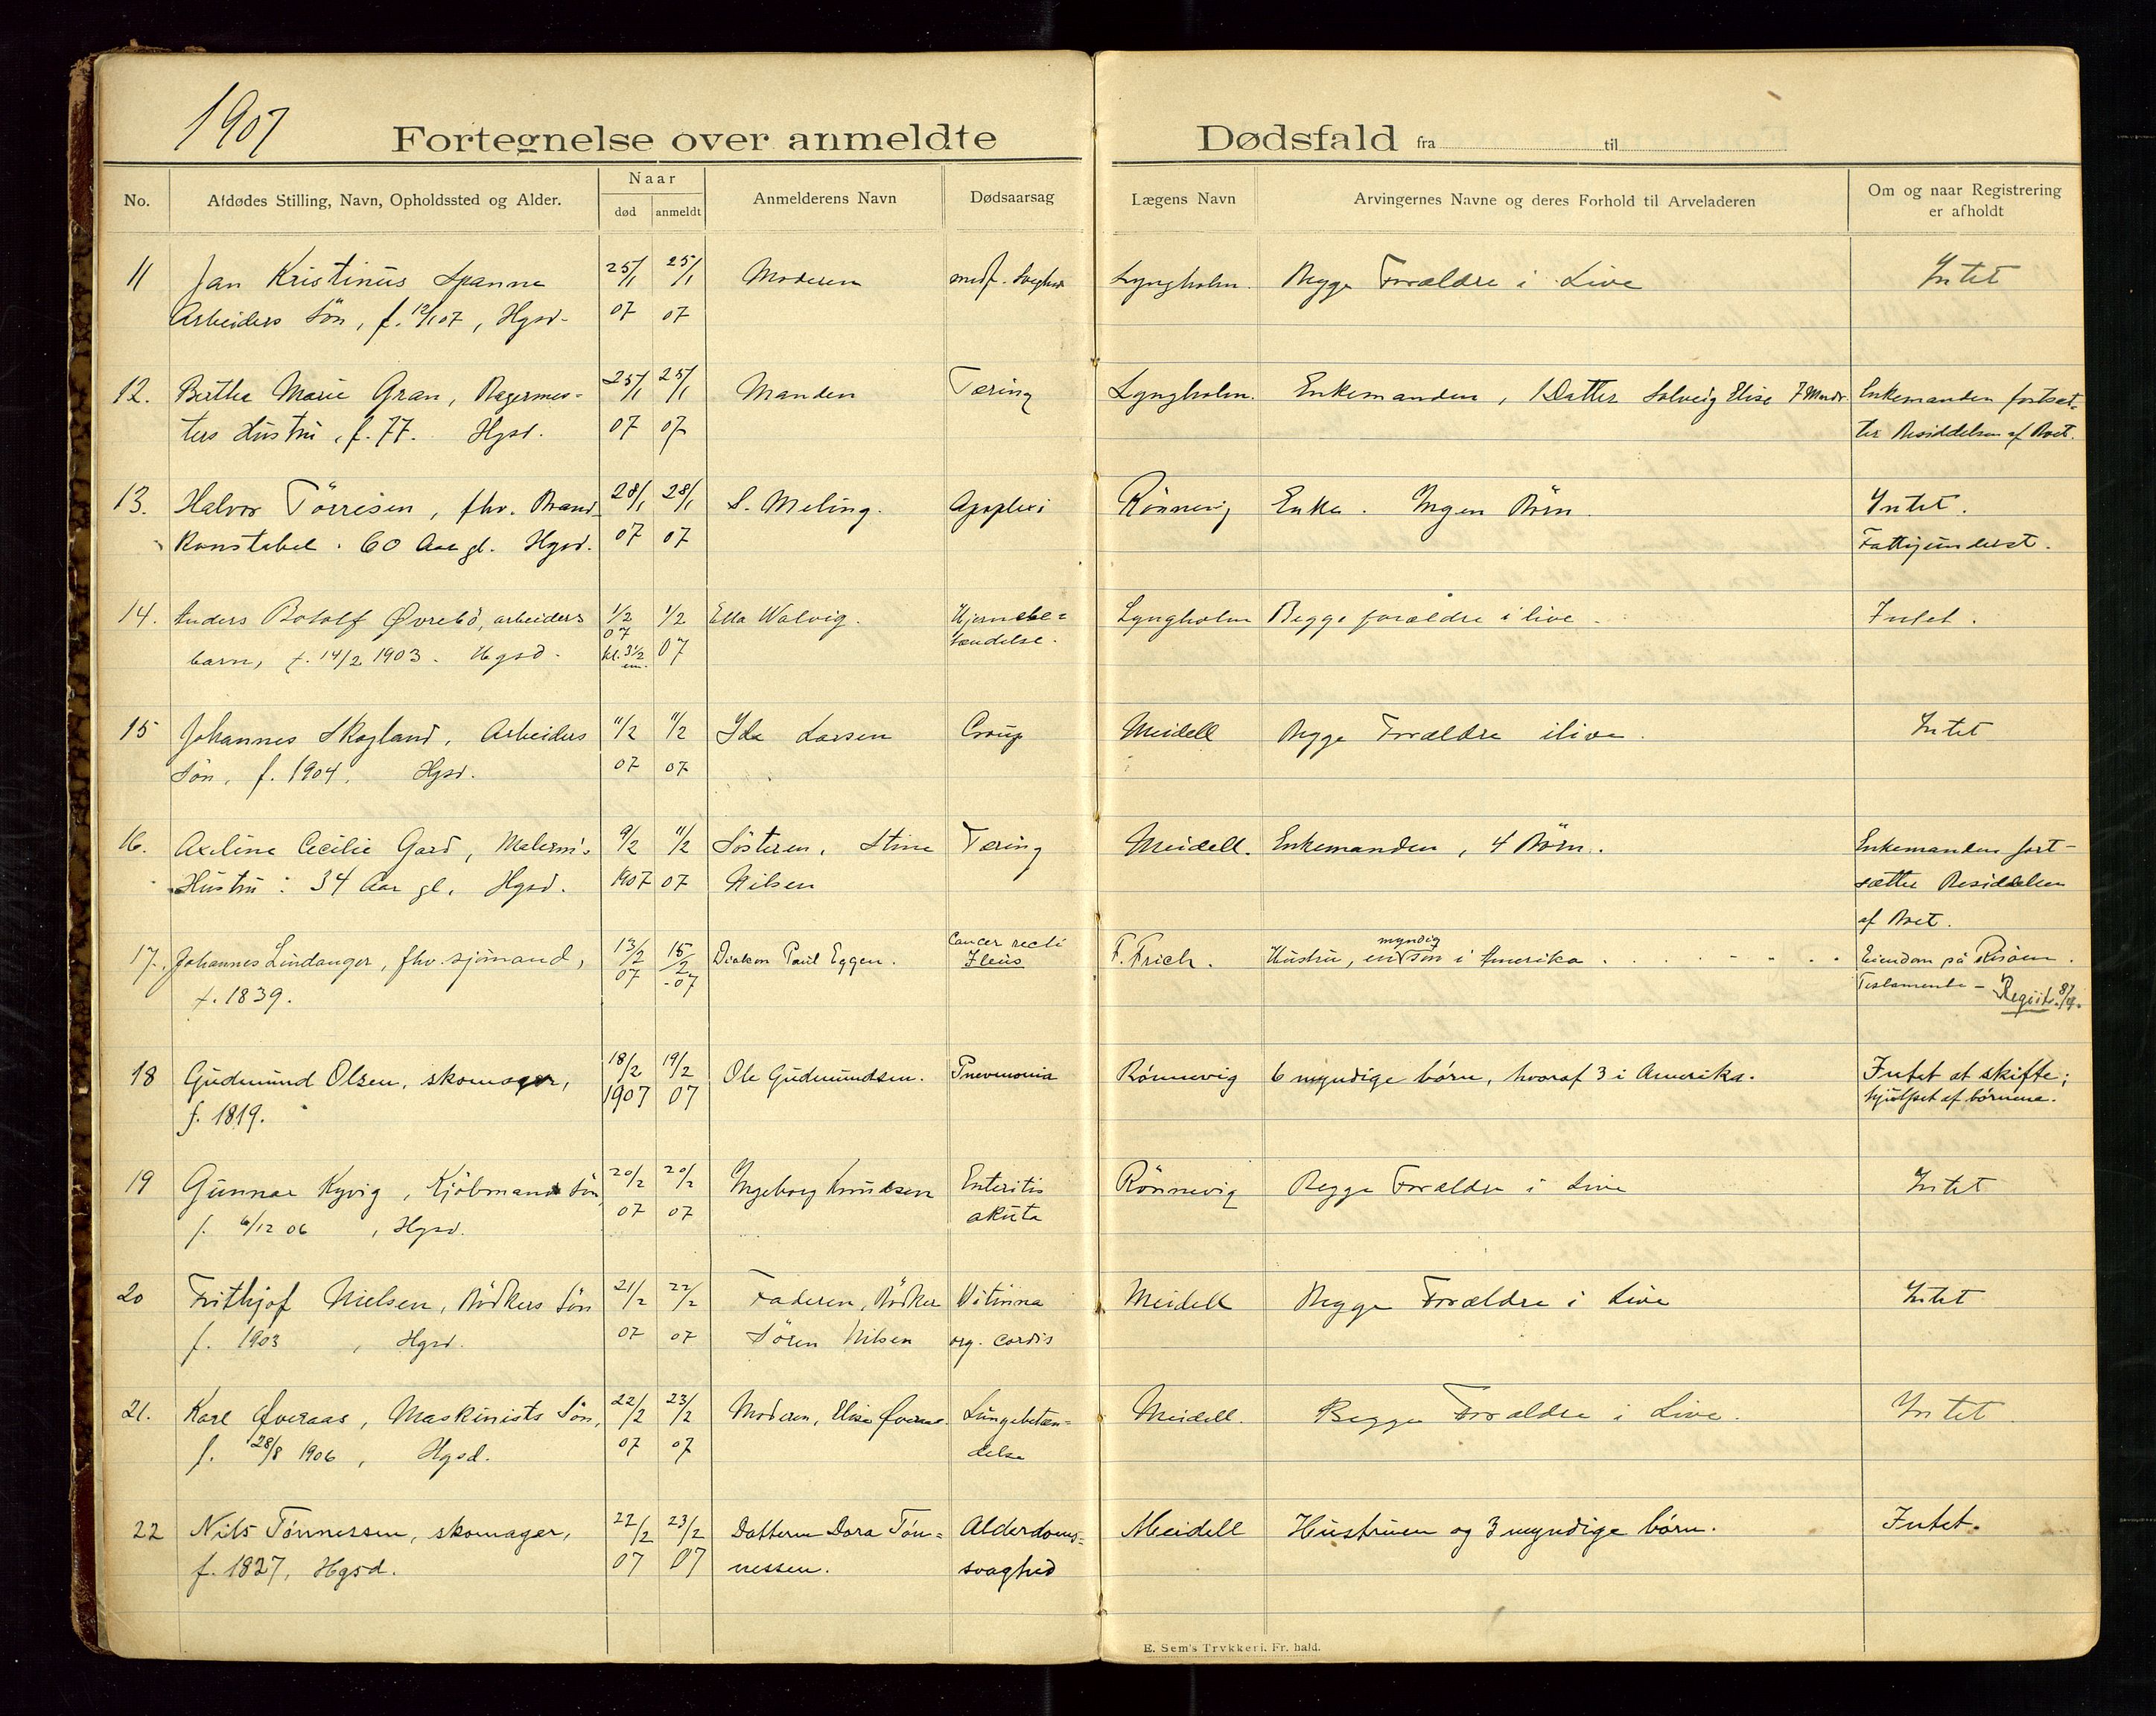 1907
Fortegnelse over anmeldte Dødsfald fra til
No. Afdødes Stilling, Navn, Opholdssted og Alder. Naar død anmeldt Anmelderens Navn Dødsaarsag Lægens Navn Arvingernes Navne og deres Forhold til Arveladeren Om og naar Registrering er afholdt
11 Jan Kristinus Spanne 25/1 25/1 Moderen medf. Svaghed Lyngholm. Begge Forældre i Live Intet
Arbeiders Søn, f. 12/1 07, Hgsd. 07 07
12. Bertha Marie Gran, Bagermes= 25/1 25/1 Manden Tæring Lyngholm. Enkemanden, 1 Datter Solveig Elise 7 Mndr. Enkemanden fortsæt=
ters Hustru, f. 77. Hgsd. 07 07 ter Besiddelsen af Boet.
13. Halvor Törrisen, fhv. Brand- 28/1 28/1 S. Meling. Apoplexi Rönnevig Enke. Ingen Börn. Intet.
konstabel. 60 Aar gl. Hgsd. 07 07 Fattigunderst.
14. Anders Botolf Øvrebö, arbeiders 1/2 07 1/2 Ella Walvig. Hjernebe= Lyngholm Begge forældre i live. Intet.
barn, f. 14/2 1903. Hgsd. kl. 3 1/2 em. 07 tændelse.
15 Johannes Skogland, Arbeiders 11/2 11/2 Ida Larsen Croup Meidell Begge Forældre ilive. Intet
Sön, f. 1904. Hgsd. 07 07
16. Axeline Cecilie Gard, Malerm's 9/2 11/2 Søsteren, Stine Tæring Meidell. Enkemanden, 4 Børn. Enkemanden fort-
Hustru: 34 Aar gl. Hgsd. 1907 07 Nilsen sætter Besiddelsen
af Boet.
17. Johannes Lindanger, fhv sjömand, 13/2 07 15/2 -07 Diakon Paul Eggen. Cancer recti Ileus F. Frich. Hustru, en myndig Søn i Amerika Eiendom på Risöen.
f. 1839. Testamente - Registr. 8/4.
18 Gudmund Olsen, skomager, 18/2 19/2 Ole Gudmundsen. Pnevmonia Rönnevig 6 myndige börn, hvoraf 3 i Amerika. Intet at skifte;
f. 1819. 1907 07 hjulpet af børnene.
19 Gunnar Kyvig, Kjöbmands Sön 20/2 20/2 Ingeborg Knudsen Enteritis Rönnevig Begge Forældre i Live Intet
f. 6/12 06, Hgsd. 07 07 akuta
20 Frithjof Nielsen, Bödkers Sön 21/2 22/2 Faderen, Bödker Vitium Meidell Begge Forældre i Live Intet
f. 1903, Hgsd. 07 07 Sören Nilsen org. cordis
21. Karl Øveraas, Maskinists Sön, 22/2 23/2 Moderen, Elise Øveraas. Lungebetæn- Meidell. Begge Forældre i Live. Intet
f. 28/8 1906, Hgsd. 07 07 delse
22 Nils Tönnessen, skomager, 22/2 23/2 Datteren Dora Tön= Alderdoms= Meidell Hustruen og 3 myndige börn. Intet.
f. 1827, Hgsd. 07 07 nessen. svaghed
E. Sem's Trykkeri, Fr. hald.